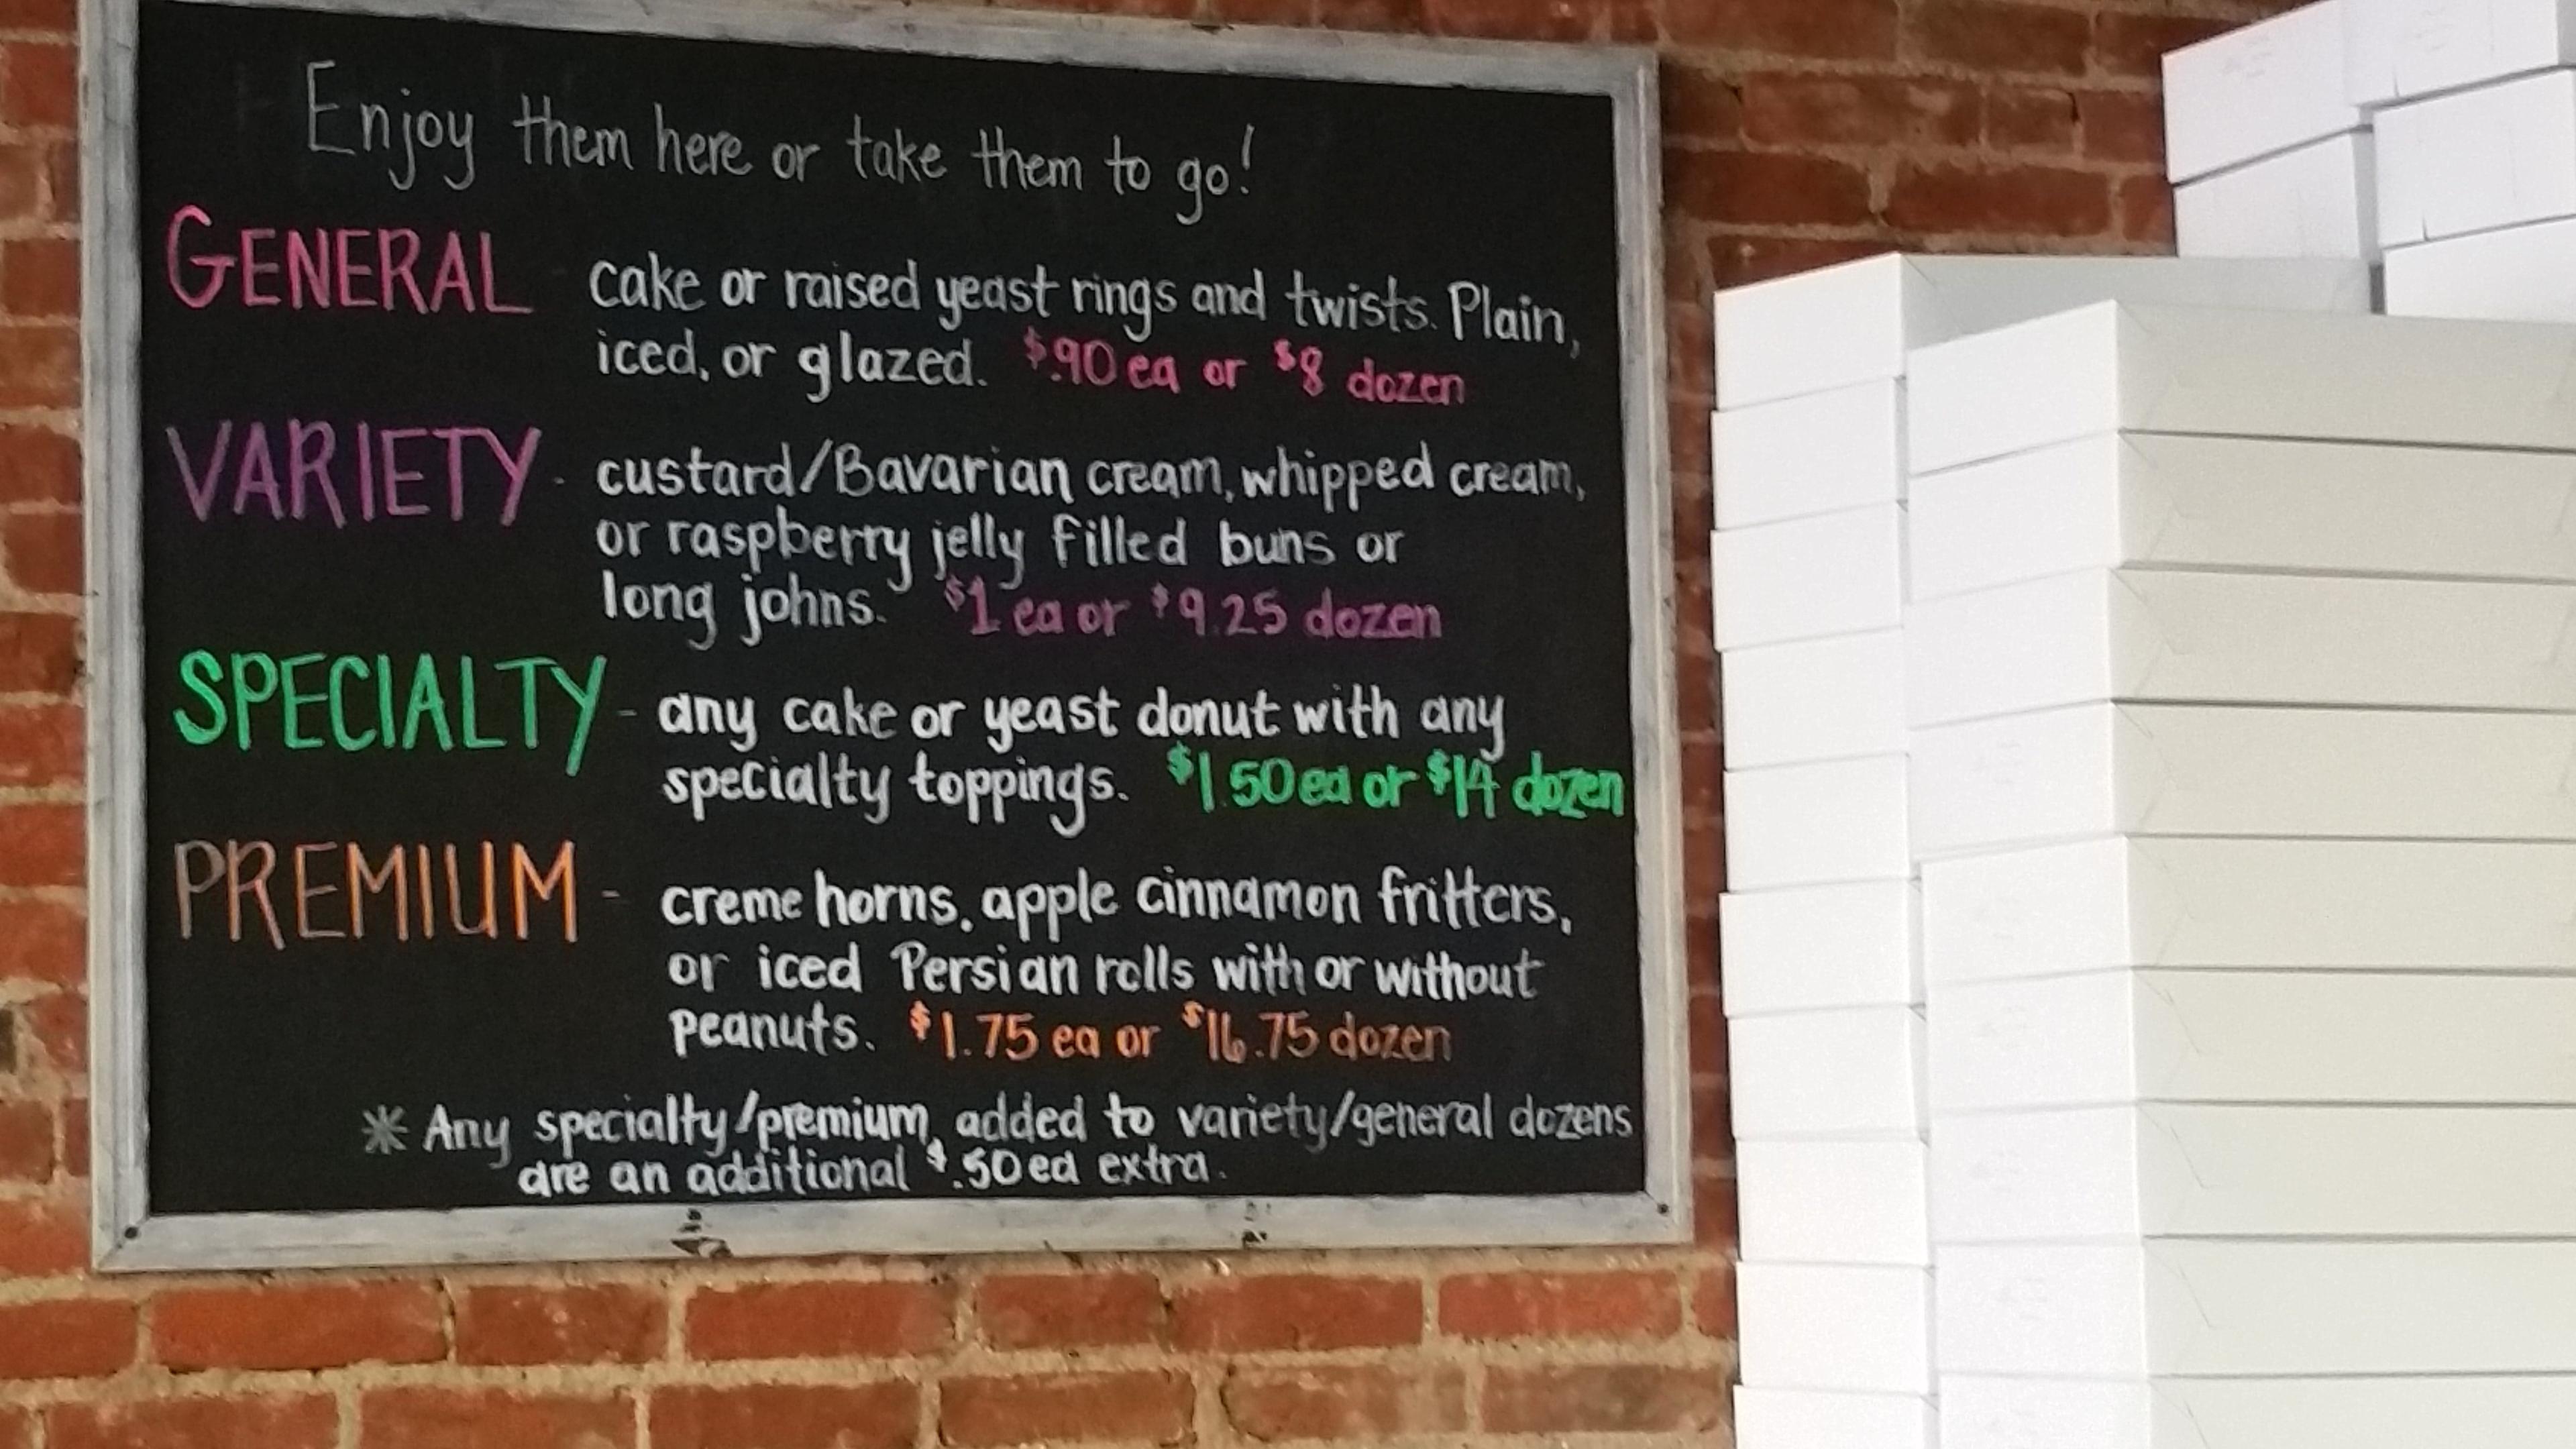 Enjoy them here or take them to go!
GENERAL - cake or raised yeast rings and twists. Plain,
iced, or glazed. $.90 ea or $8 dozen
VARIETY - custard/Bavarian cream, whipped cream,
or raspberry jelly filled buns or
long johns. $1 ea or $9.25 dozen
SPECIALTY - any cake or yeast donut with any
specialty toppings. $1.50 ea or $14 dozen
PREMIUM - creme horns, apple cinnamon fritters,
or iced Persian rolls with or without
peanuts. $1.75 ea or $16.75 dozen
* Any specialty/premium, added to variety/general dozens
are an additional $.50 ea extra.